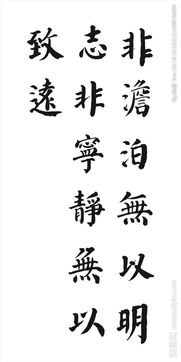 非澹泊無以明
志非寧靜無以
致遠